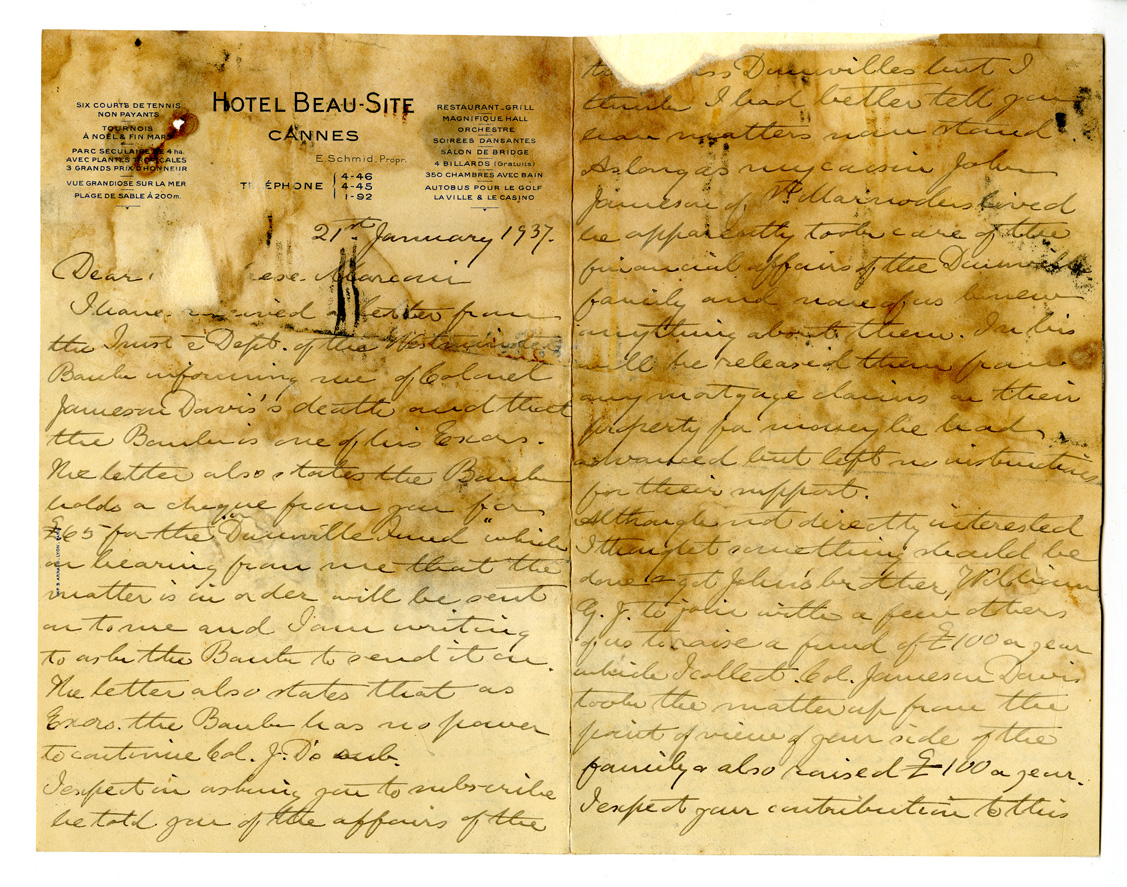 SIX COURTS DE TENNIS
NON PAYANTS
TOURNOIS
À NOËL & FIN MARS
PARC SÉCULAIRE DE 4 ha.
AVEC PLANTES TROPICALES
3 GRANDS PRIX D'HONNEUR
VUE GRANDIOSE SUR LA MER
PLAGE DE SABLE À 200m.
HOTEL BEAU-SITE
CANNES
E. Schmid, Propr.
TÉLÉPHONE
4-46
4-45
1-92
RESTAURANT-GRILL
MAGNIFIQUE HALL
ORCHESTRE
SOIRÉES DANSANTES
SALON DE BRIDGE
4 BILLARDS (Gratuits)
350 CHAMBRES AVEC BAIN
AUTOBUS POUR LE GOLF
LA VILLE & LE CASINO
21st January 1937.
Dear ese Marconi
I have received a letter from
the Trustee Dept. of the Westminster
Bank informing me of Colonel
Jameson Davis's death and that
the Bank is one of his Exors.
The letter also states the Bank
holds a cheque from you for
£65 for the "Dunville Fund" which
on hearing from me that the
matter is in order will be sent
on to me and I am writing
to ask the Bank to send it on.
The letter also states that as
Exors. the Bank has no power
to continue Col. J. D's sub.
I expect in asking you to subscribe
he told you of the affairs of the
Dunvilles but I
think I had better tell you
how matters now stand
As long as my cousin John
Jameson of St Marnocks lived
he apparently took care of the
financial affairs of the Dunville
family and none of us knew
anything about them. In his
will he released them from
any mortgage claims on their
property for money he had
advanced but left no instructions
for their support.
Although not directly interested
I thought something should be
done & got John's brother, William
G. J. to join with a few others
of us to raise a fund of £100 a year
which I collect. Col. Jameson Davis
took the matter up from the
point of view of your side of the
family & also raised £100 a year.
I expect your contribution to this